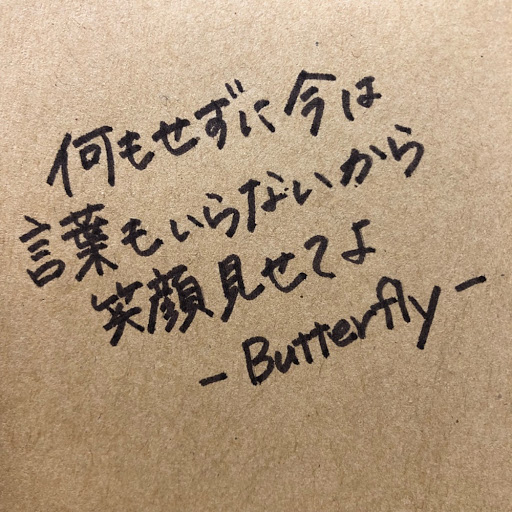 何もせずに今は
言葉もいらないから
笑顔見せてよ
- Butterfly -